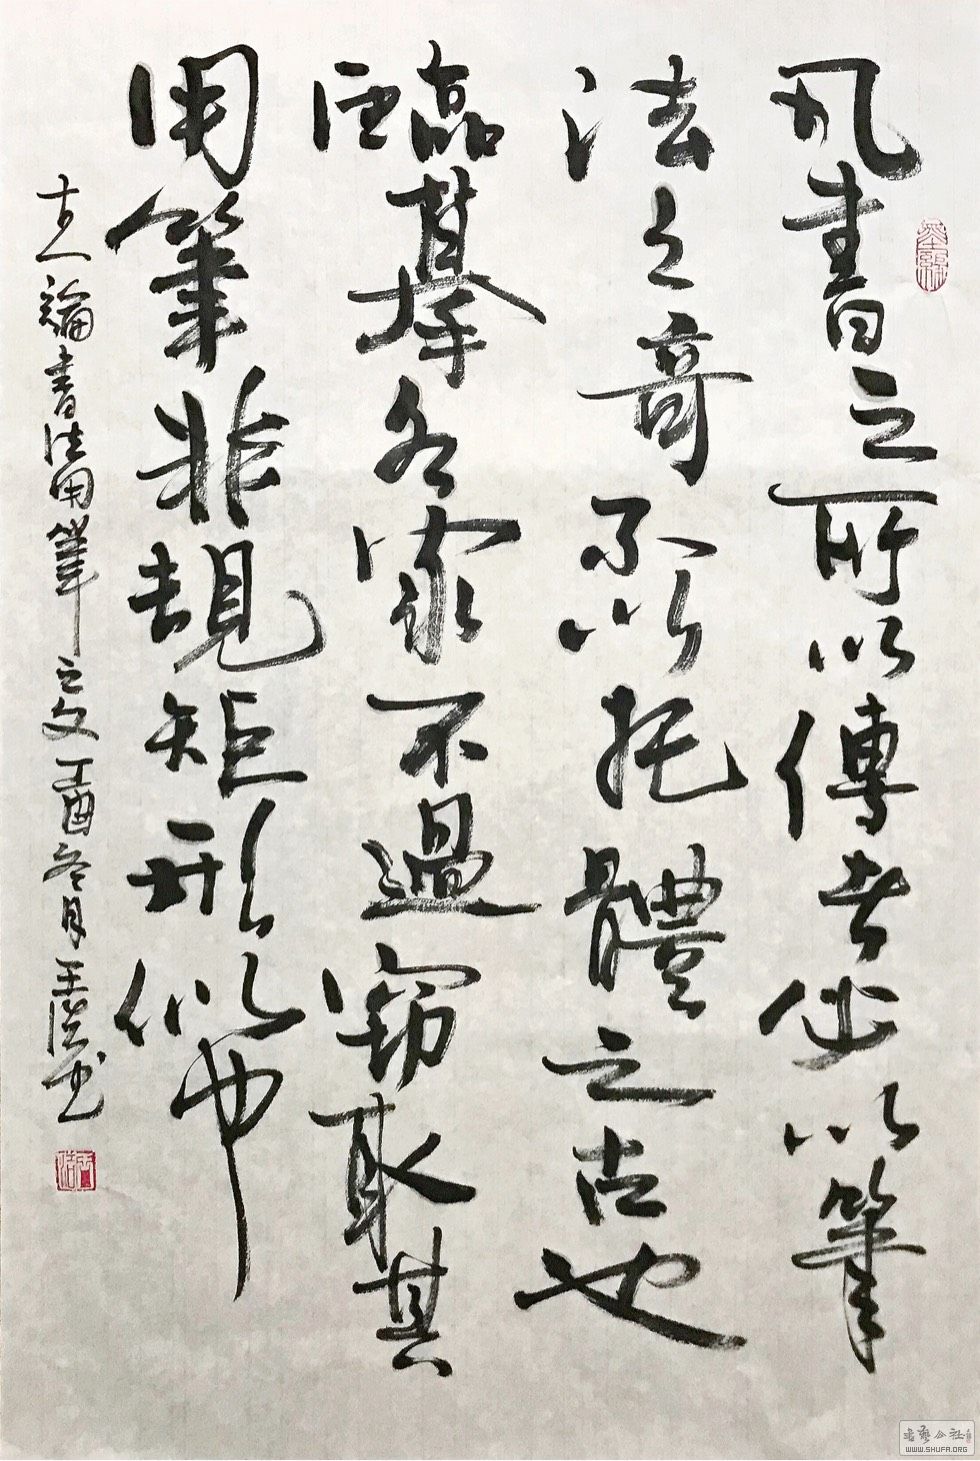 凡書之所以傳者必以筆
法之奇不以托體之古也
臨摹名家不過竊取其
用筆非規矩形似也
古人論書法用筆之文丁酉冬月王浩書
書藝公社
WWW.SHUFA.ORG